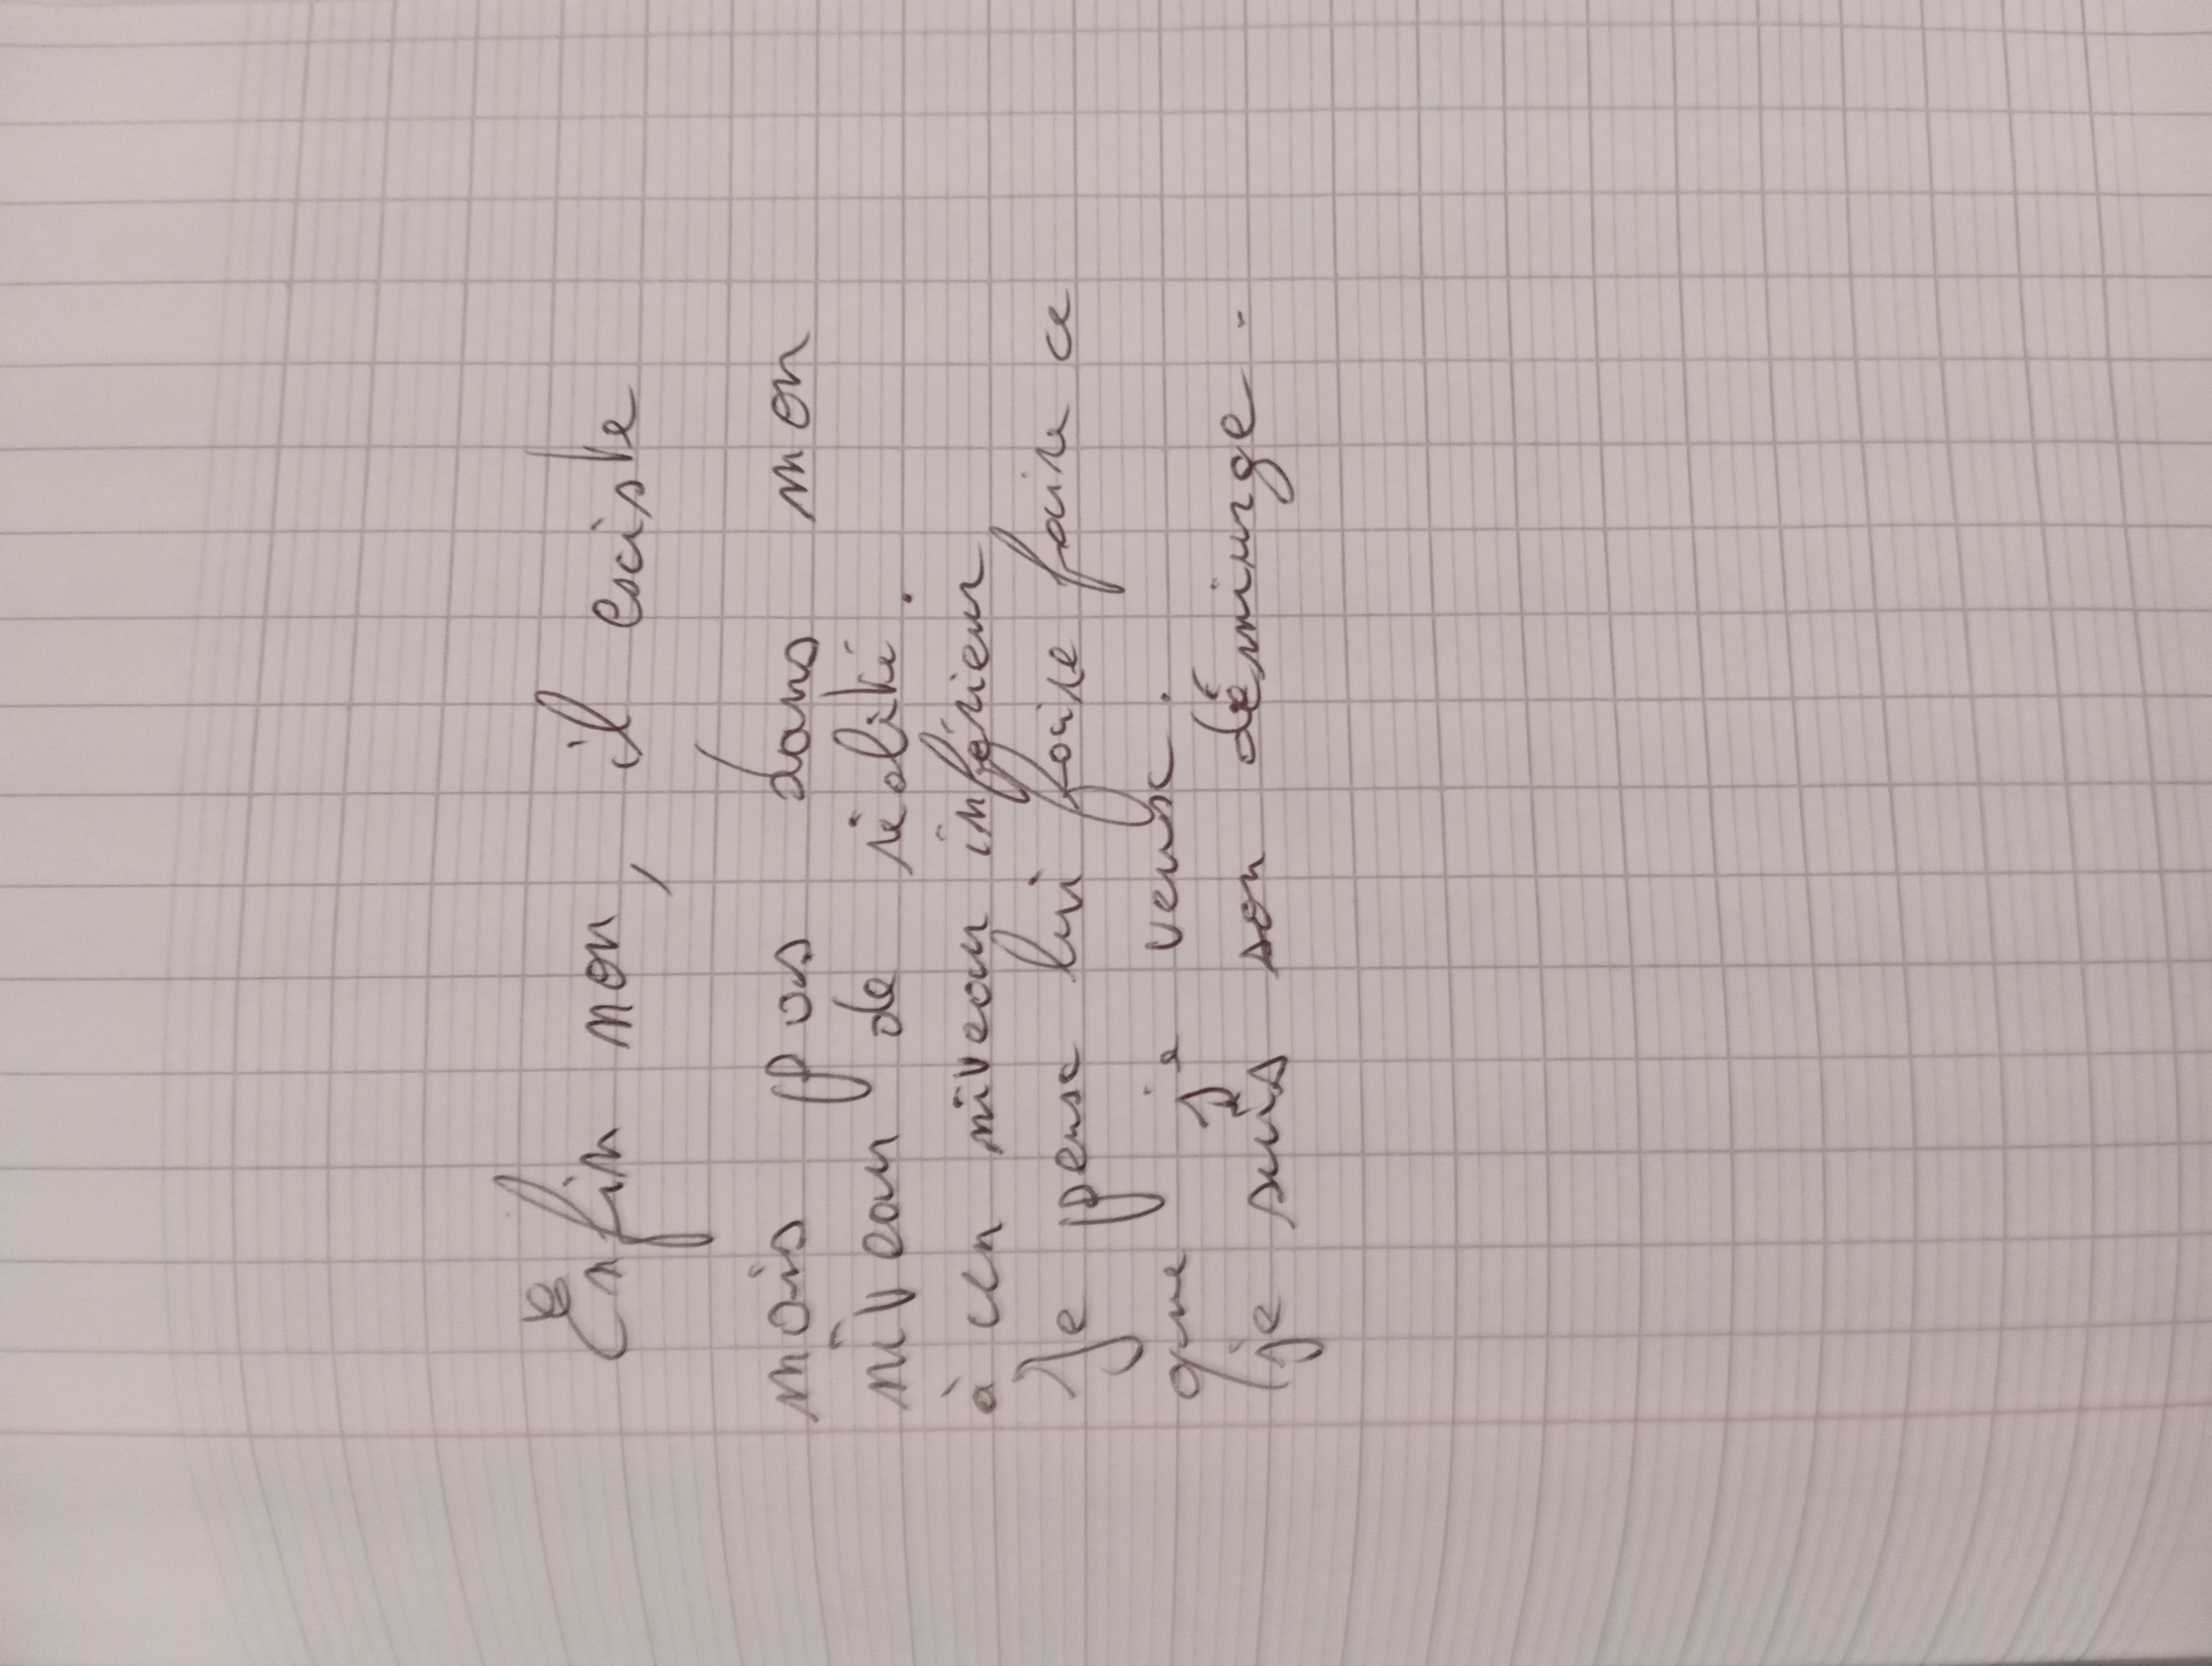 Enfin non, il existe
mais pas dans mon
niveau de réalité.
à un niveau inférieur
Je pense lui faire faire ce
que je veux.
je suis son démiurge.